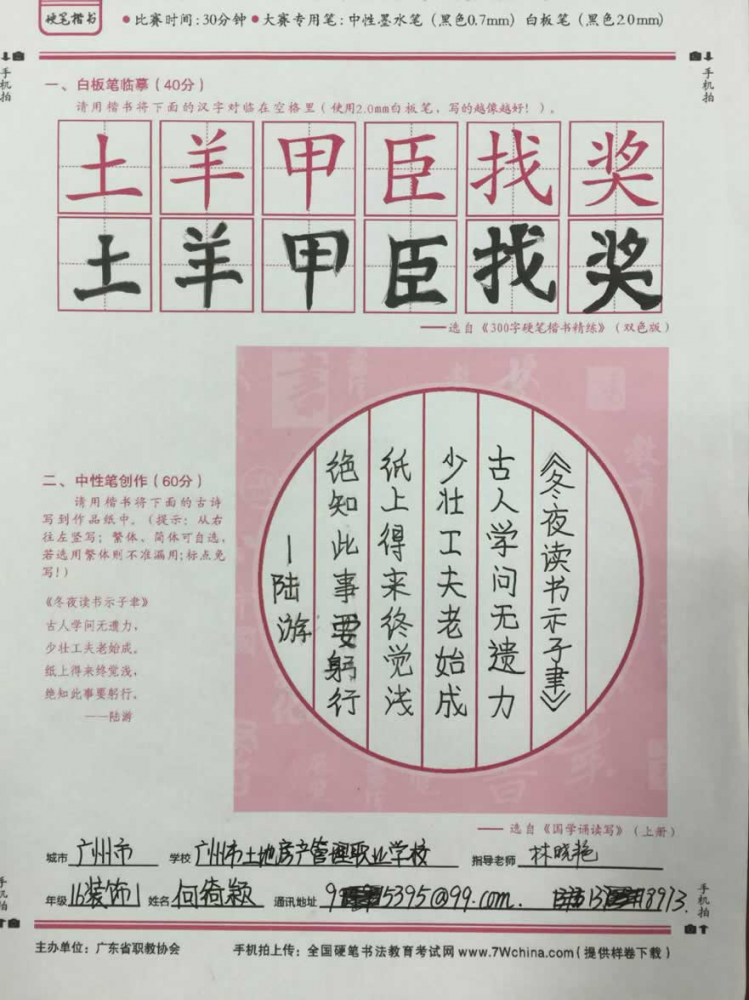 硬笔楷书
●比赛时间:30分钟●大赛专用笔:中性墨水笔(黑色0.7mm) 白板笔(黑色2.0mm)
手机拍
手机拍
一、白板笔临摹(40分)
请用楷书将下面的汉字对临在空格里(使用2.0mm白板笔,写的越像越好!)。
土羊甲臣找奖
土羊甲臣找奖
——选自《300字硬笔楷书精练》(双色版)
二、中性笔创作(60分)
请用楷书将下面的古诗
写到作品纸中。(提示:从右
往左竖写;繁体、简体可自选,
若选用繁体则不准漏用;标点免
写!)
《冬夜读书示子聿》
古人学问无遗力,
少壮工夫老始成。
纸上得来终觉浅,
绝知此事要躬行。
——陆游
《冬夜读书示子聿》
古人学问无遗力
少壮工夫老始成
纸上得来终觉浅
绝知此事要躬行
—陆游
——选自《国学诵读写》(上册)
城市 广州市 学校 广州市土地房产管理职业学校 指导老师 林晓艳
年级 16装饰1 姓名 何绮颖 通讯地址 9 5395@99.com. 13 8913.
手机拍
手机拍
主办单位:广东省职教协会 手机拍上传:全国硬笔书法教育考试网 www.7Wchina.com(提供样卷下载)